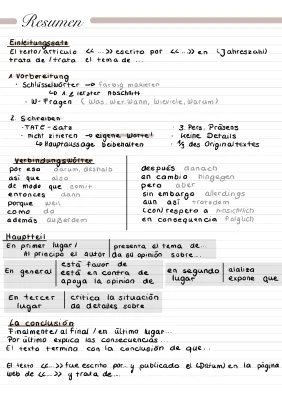 Resumen
Einleitungssatz
El texto/artículo << ...>> escrito por <<...>> en (Jahreszahl)
trata de / trata el tema de ...
1. Vorbereitung
· Schlüsselwörter → farbig markieren
↳ 1. & letzter Abschnitt
· W-Fragen (Was, Wer, Wann, Wieviele, Warum)
2. Schreiben
· TATC-Satz
· nicht zitieren → eigene Worte!
↳ Hauptaussage beibehalten
· 3. Pers. Präsens
· keine Details
· 1/3 des Originaltextes
Verbindungswörter
por eso darum, deshalb
así que also
de modo que somit
entonces dann
porque weil
como da
además außerdem
después danach
en cambio hingegen
pero aber
sin embargo allerdings
aun así trotzdem
(con) respeto a hinsichtlich
en consequencia folglich
Hauptteil
En primer lugar / presenta el tema de...
Al principio el autor da su opinión sobre...
En general
está favor de
está en contra de
apoya la opinión de
en segundo lugar
analiza
expone que
En tercer lugar
critica la situación
da detalles sobre
La conclusión
Finalmente / al final / en último lugar...
Por último explica las consecuencias ...
El texto termina con la conclusión de que...
El texto <<...>> fue escrito por... y publicado el (Datum) en la página
web de <<...>> y trata de...